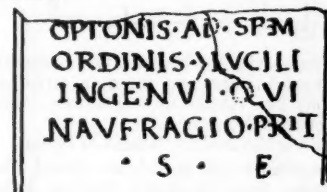 OPTONIS·AD·SPEM
ORDINIS·>LVCILI
INGENVI·QVI
NAVFRAGIO·PERIT
· S · E